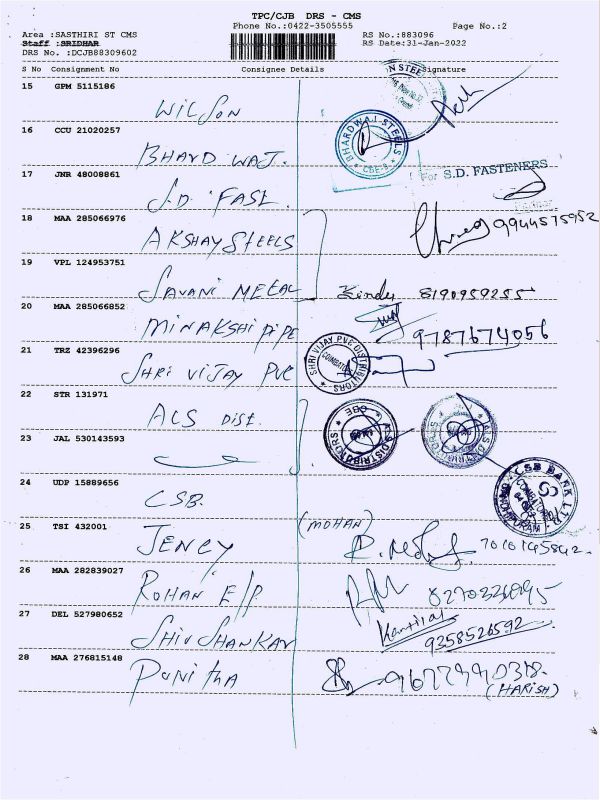 TPC/CJB DRS - CMS
Phone No.:0422-3505555 Page No.:2
Area :SASTHIRI ST CMS RS No.:883096
Staff :SRIDHAR RS Date:31-Jan-2022
DRS No. :DCJB88309602
S No Consignment No Consignee Details Signature
15 GPM 5115186
WILSON
16 CCU 21020257
BHARDWAJ STEELS
CBE-9
BHARD WAJ.
17 JNR 48008861
For S.D. FASTENERS
S.D. FAST.
18 MAA 285066976
9944575952
AKSHAY STEELS
19 VPL 124953751
SAVANI METAL 8190959255
20 MAA 285066852
MINAKSHI PIPE 9787674056
21 TRZ 42396296
SHRI VIJAY PVC DISTRIBUTORS
COIMBATORE
SHRI VIJAY PVC
22 STR 131971
ALS DIST.
ALS DISTRIBUTORS
CBE
ALS DISTRIBUTORS
23 JAL 530143593
24 UDP 15889656
CSB BANK LTD
CSB.
25 TSI 432001 (MOHAN)
JENCY
26 MAA 282839027
ROHAN E/P
27 DEL 527980652
SHIV SHANKAR 9358526592
28 MAA 276815148
PUNITHA
(HARISH)